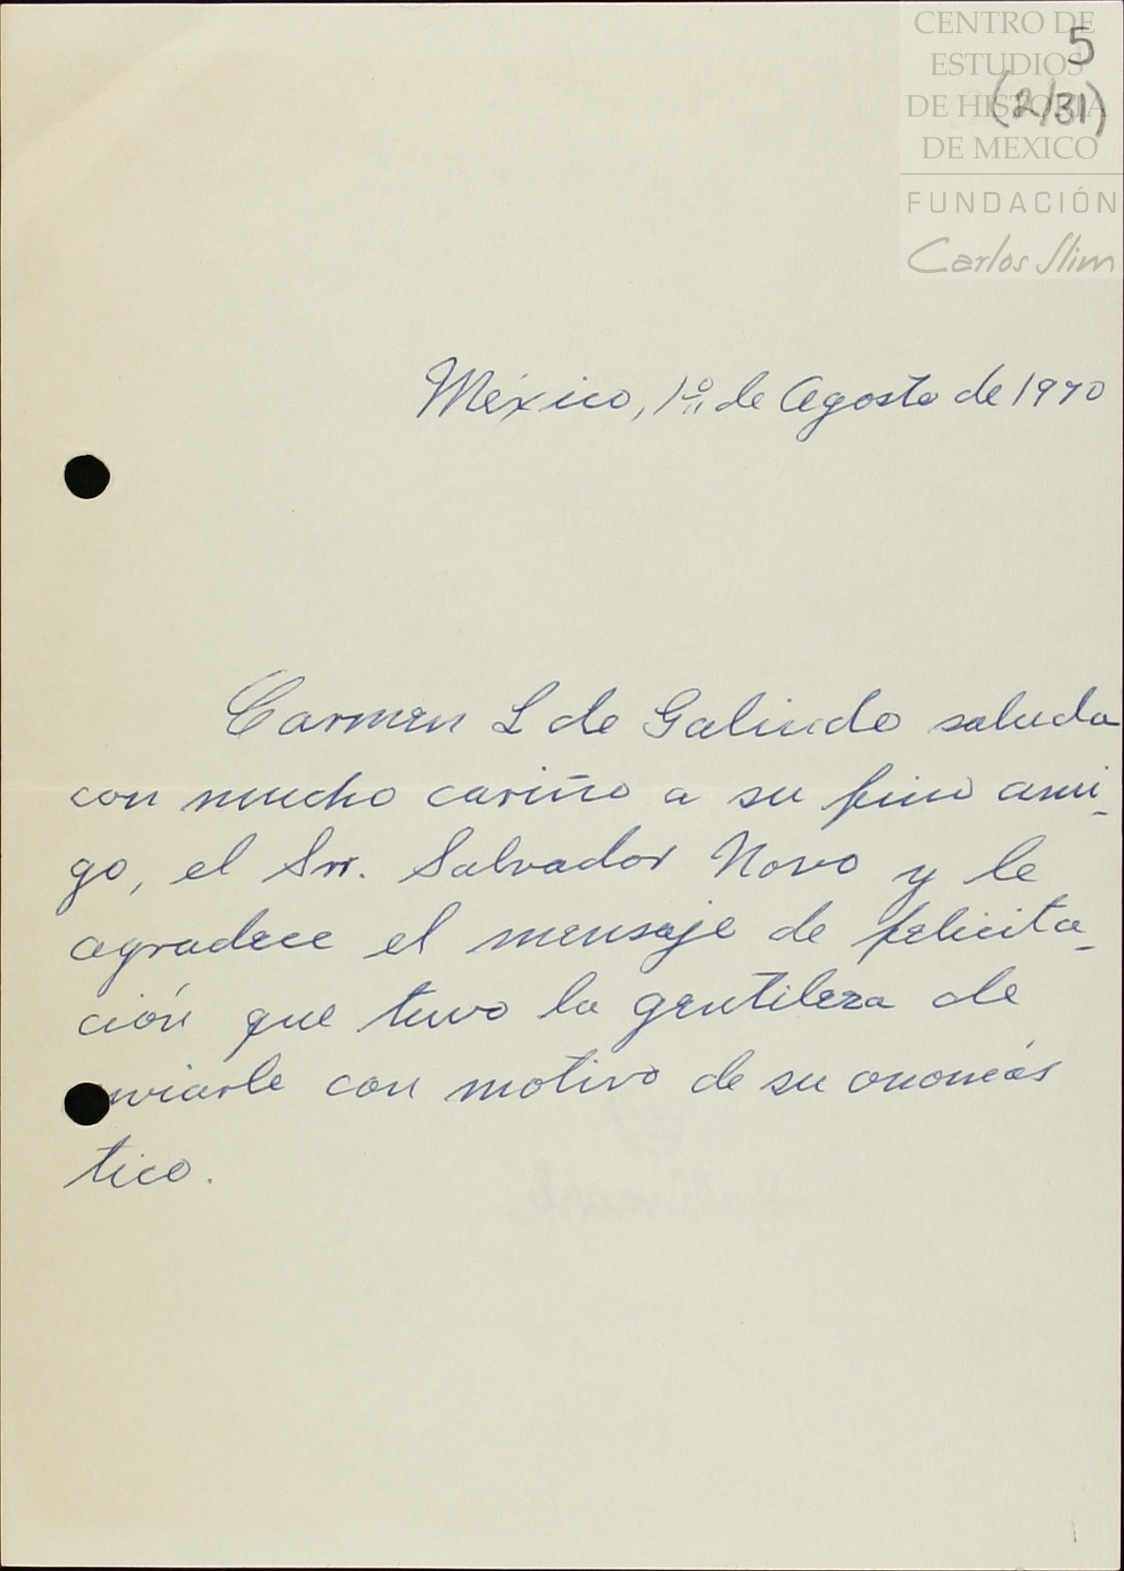 CENTRO DE
ESTUDIOS
DE HISTORIA
DE MEXICO
FUNDACIÓN
Carlos Slim
5
(2/31)
México, 1º de Agosto de 1970
Carmen L de Galindo saluda
con mucho cariño a su fino ami-
go, el Sr. Salvador Novo y le
agradece el mensaje de felicita-
ción que tuvo la gentileza de
nviarle con motivo de su onomás
tico.